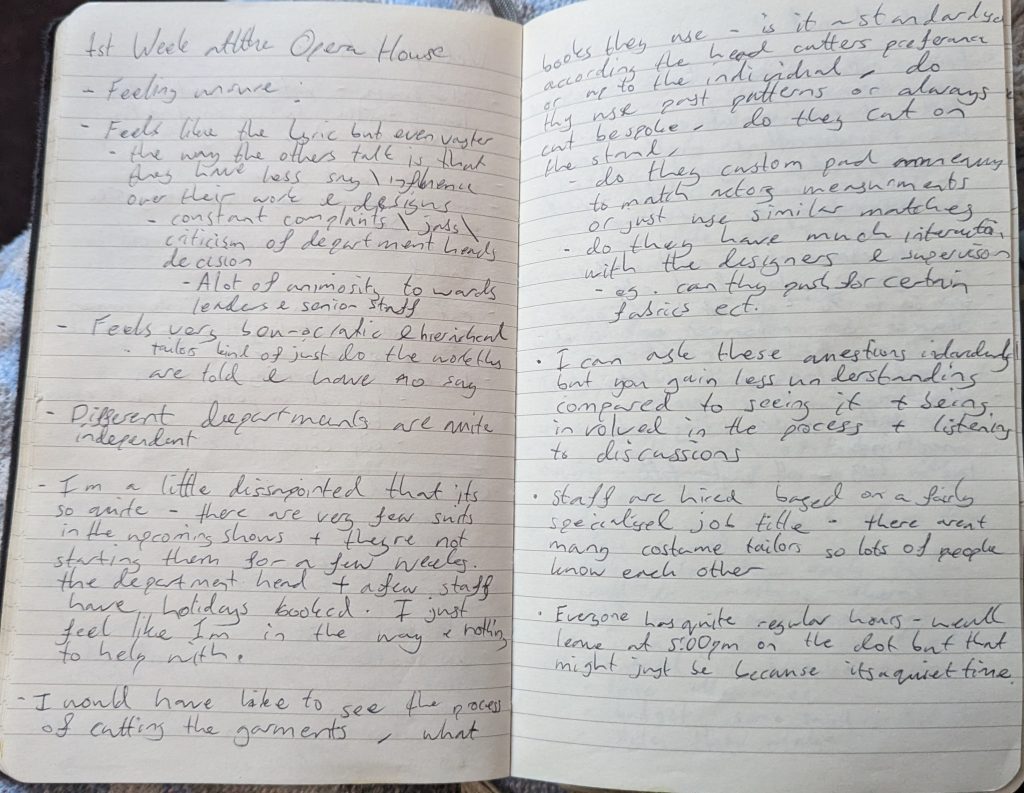 1st Week at the Opera House
- Feeling unsure :
- Feels like the Lyric but even vaster
- the way the others talk is that
they have less say \ influence
over their work & designs
- constant complants \ jabs \
criticism of department heads
decision
- Alot of animosity to wards
leaders & senior staff
- Feels very & hierichical
- tailors kind of just do the work they
are told & have no say
- Different departments are quite
independent
- I'm a little dissapointed that its
so quite - there are very few suits
in the upcoming shows + theyre not
starting them for a few weeks.
the department head + a few staff
have holidays booked. I just
feel like I'm in the way & nothing
to help with.
- I would have like to see the process
of cutting the garments, what
books they use - is it standardysed
according the head cutters preferance
or up to the individual, do
thy use past patterns or always
cut bespoke, do they cut on
the stand,
- do they custom pad
to match actors measurments
or just use similar matches
- do they have much interaction
with the designers & supervisors
- eg. can thy push for certain
fabrics ect.
• I can ask these questions
but you gain less understanding
compared to seeing it + being
involved in the process + listening
to discussions
• Staff are hired based on a fairly
specialised job title - there arent
many costume tailors so lots of people
know each other
• Everyone has quite regular hours - we all
leave at 5:00pm on the dot but that
might just be because its a quiet time.